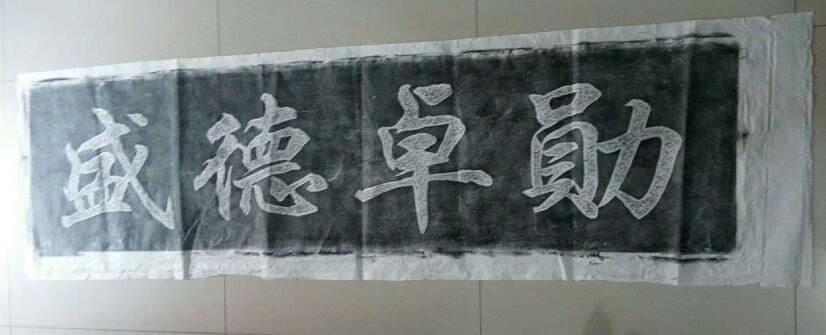 盛德卓勛